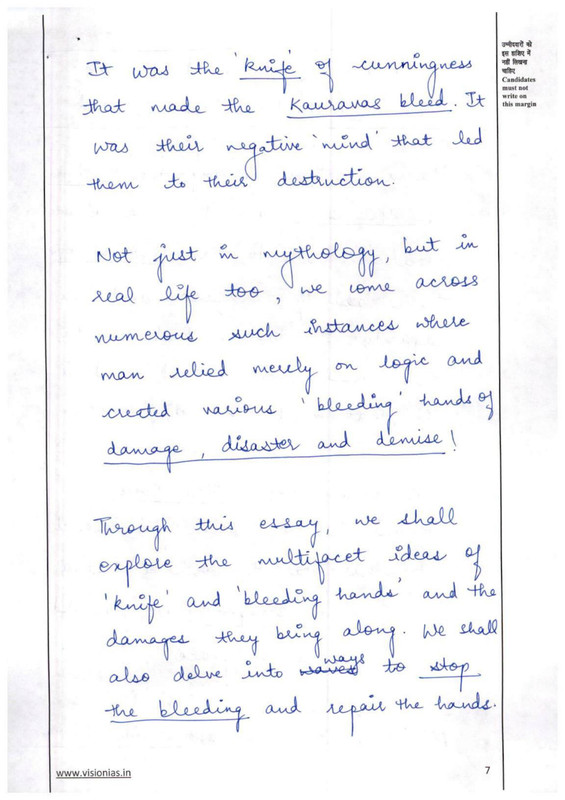 It was the 'knife' of cunningness
that made the Kauravas bleed. It
was their negative 'mind' that led
them to their destruction.
Not just in mythology, but in
real life too, we come across
numerous such instances where
man relied merely on logic and
created various 'bleeding' hands of
damage, disaster and demise!
Through this essay, we shall
explore the multifacet ideas of
'knife' and 'bleeding hands' and the
damages they being along. We shall
also delve into ways to stop
the bleeding and repair the hands.
उम्मीदवारों को
इस हाशिए में
नहीं लिखना
चाहिए
Candidates
must not
write on
this margin
www.visionias.in
7